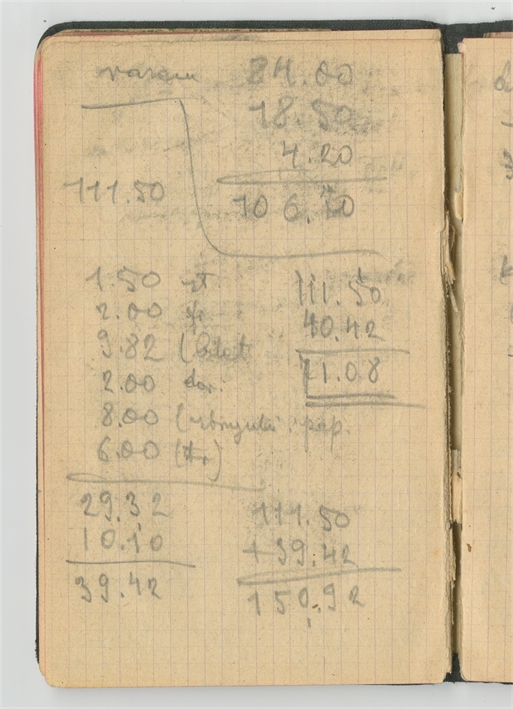 razem 84.00
18.50
4.20
111.50 106.70
1.50 zł.
2.00
9.82 (bilet
2.00
8.00 pap.
6.00
111.50
40.42
71.08
29.32
10.10
39.42
111.50
+ 39.42
150.92